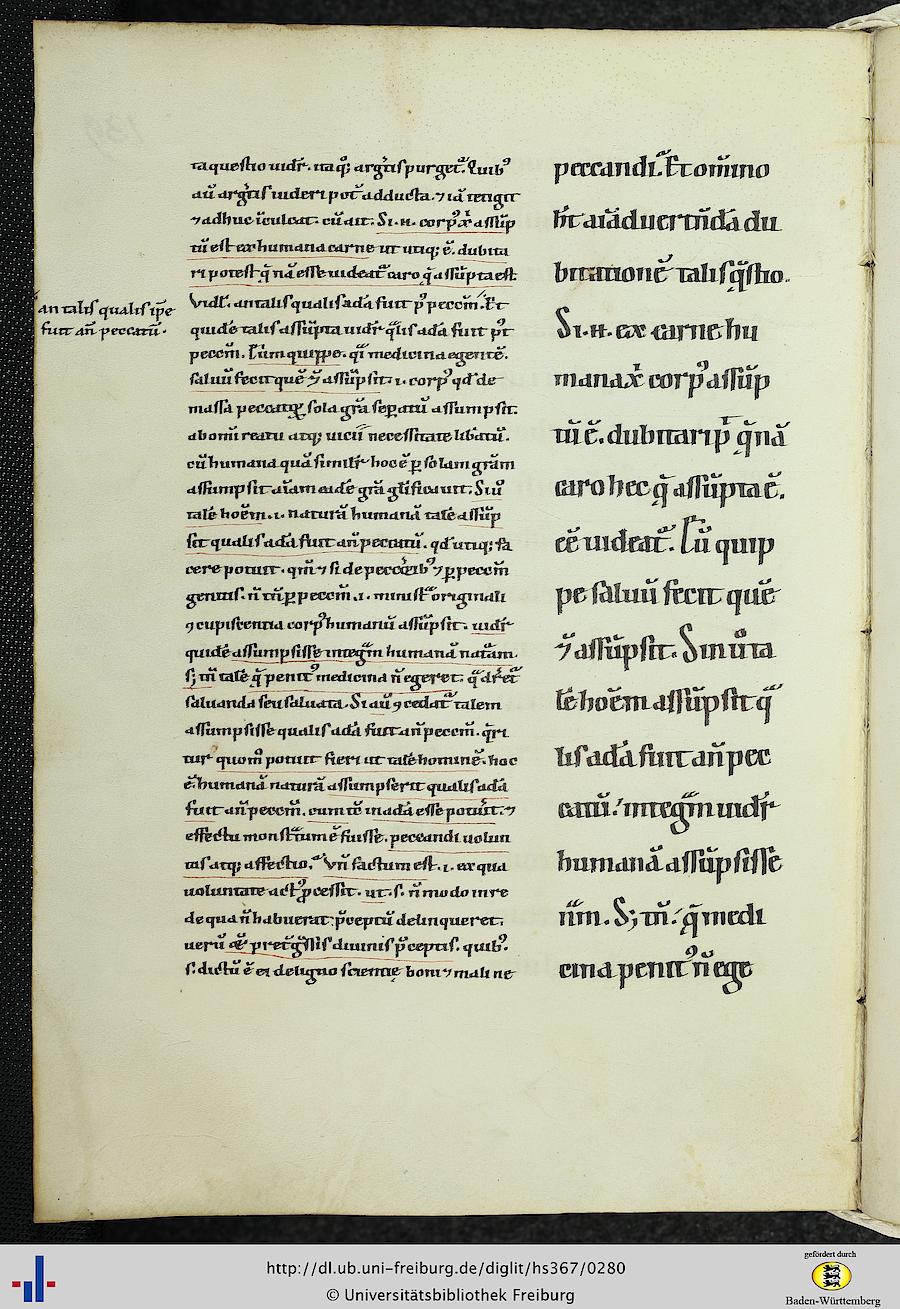 an talis qualis ip̄e
fuit añ peccatū·
ta questio uidr̄. itaq; argr̄tis purget᷑. Quib⁹
aū argr̄tis uideri pot᷑ adducta. ⁊ iā tetigit
⁊ adhuc īculcat. cū ait. Si .n. corp⁹ xp̄i assūp
tū est ex humana carne ut utiq; ē. dubita
ri potest q̄ nā esse uideat᷑ caro q̄ assūpta est.
Vidr̄. an talis qualis adā fuit p⁹ peccm̄. Et
quidē talis assūpta uidr̄ q̄lis adā fuit p᷑t
peccm̄. Cum quippe. q̄i medicina egentē.
saluū fecit quē ⁊ assūpsit. i. corp⁹ qd̄ de
massa peccat̄ꝝ sola gr̄a sepatū assumpsit.
ab omi reatu atq; uicii necessitate lib̄atū.
cū humana quā similr̄ hoc ē ꝑ solam gr̄am
assumpsit aīam eadē gr̄a gl̄ificauit. Si ū
talē hoēm .i. naturā humanā talē assūp
sit qualis adā fuit añ peccatū. qd̄ utiq; fa
cere potuit. qm̄ ⁊ si de peccōrib⁹ ⁊ ꝑ peccm̄
genitis. n̄ tn̄ ꝑ peccm̄ .i. minist᷑o originali
ꝯcupiscentia corp⁹ humanū assūpsit. uidr̄
quidē assumpsisse integrm̄ humanā nat᷑am.
s; tn̄ talē q̄ penit⁹ medicina n̄ egeret.
saluanda seu saluata. Si aū ꝯcedat᷑ talem
assumpsisse qualis adā fuit añ peccm̄. q̄ri
tur quom̄ potuit fieri ut talē hominē. hoc
ē humanā naturā assumpserit qualis adā
fuit añ peccm̄. cum tē in adā esse potūit. ⁊
effectu monst᷑tum ē fuisse. peccandi uolun
tas atq; affectio. Vn̄ factum est .i. ex qua
uoluntate act⁹ p̄cessit. ut .s. n̄ modo in re
de qua n̄ habuerat p̄ceptū delinqueret.
uerū diuinis p̄ceptis. quib⁹.
s. dictū ē ei de ligno scientię boni ⁊ mali ne
peccandi᷑. Et om̄ino
h᷑t aīaduertn̄da du
bitationē talis q̄stio.
Si .n. ex carne hu
mana xp̄i corp⁹ assūp
tū ē. dubitari p̄t q̄ nā
caro hec q̄ assūpta ē.
eē uideat᷑. Cū quip
pe saluū fecit quē
⁊ assūpsit. Sin ū ta
lē hoēm assūpsit q᷑
lis adā fuit añ pec
catū. integrm̄ uidr̄
humanā assūpsisse
nr̄m. S; tn̄. q̄ medi
cina penit⁹ n̄ ege
http://dl.ub.uni-freiburg.de/diglit/hs367/0280
© Universitätsbibliothek Freiburg
gefördert durch
Baden-Württemberg